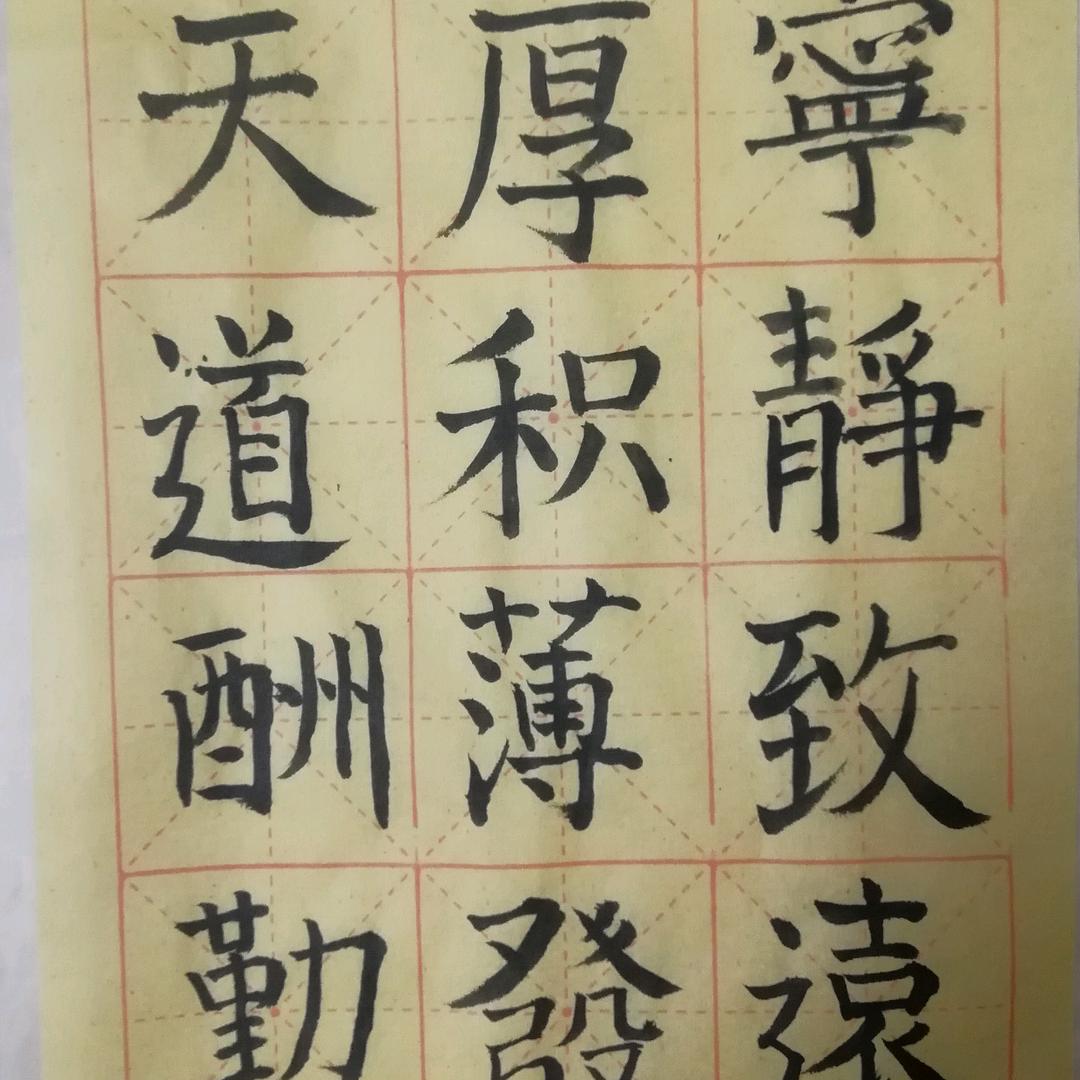 寧靜致遠
厚积薄發
天道酬勤